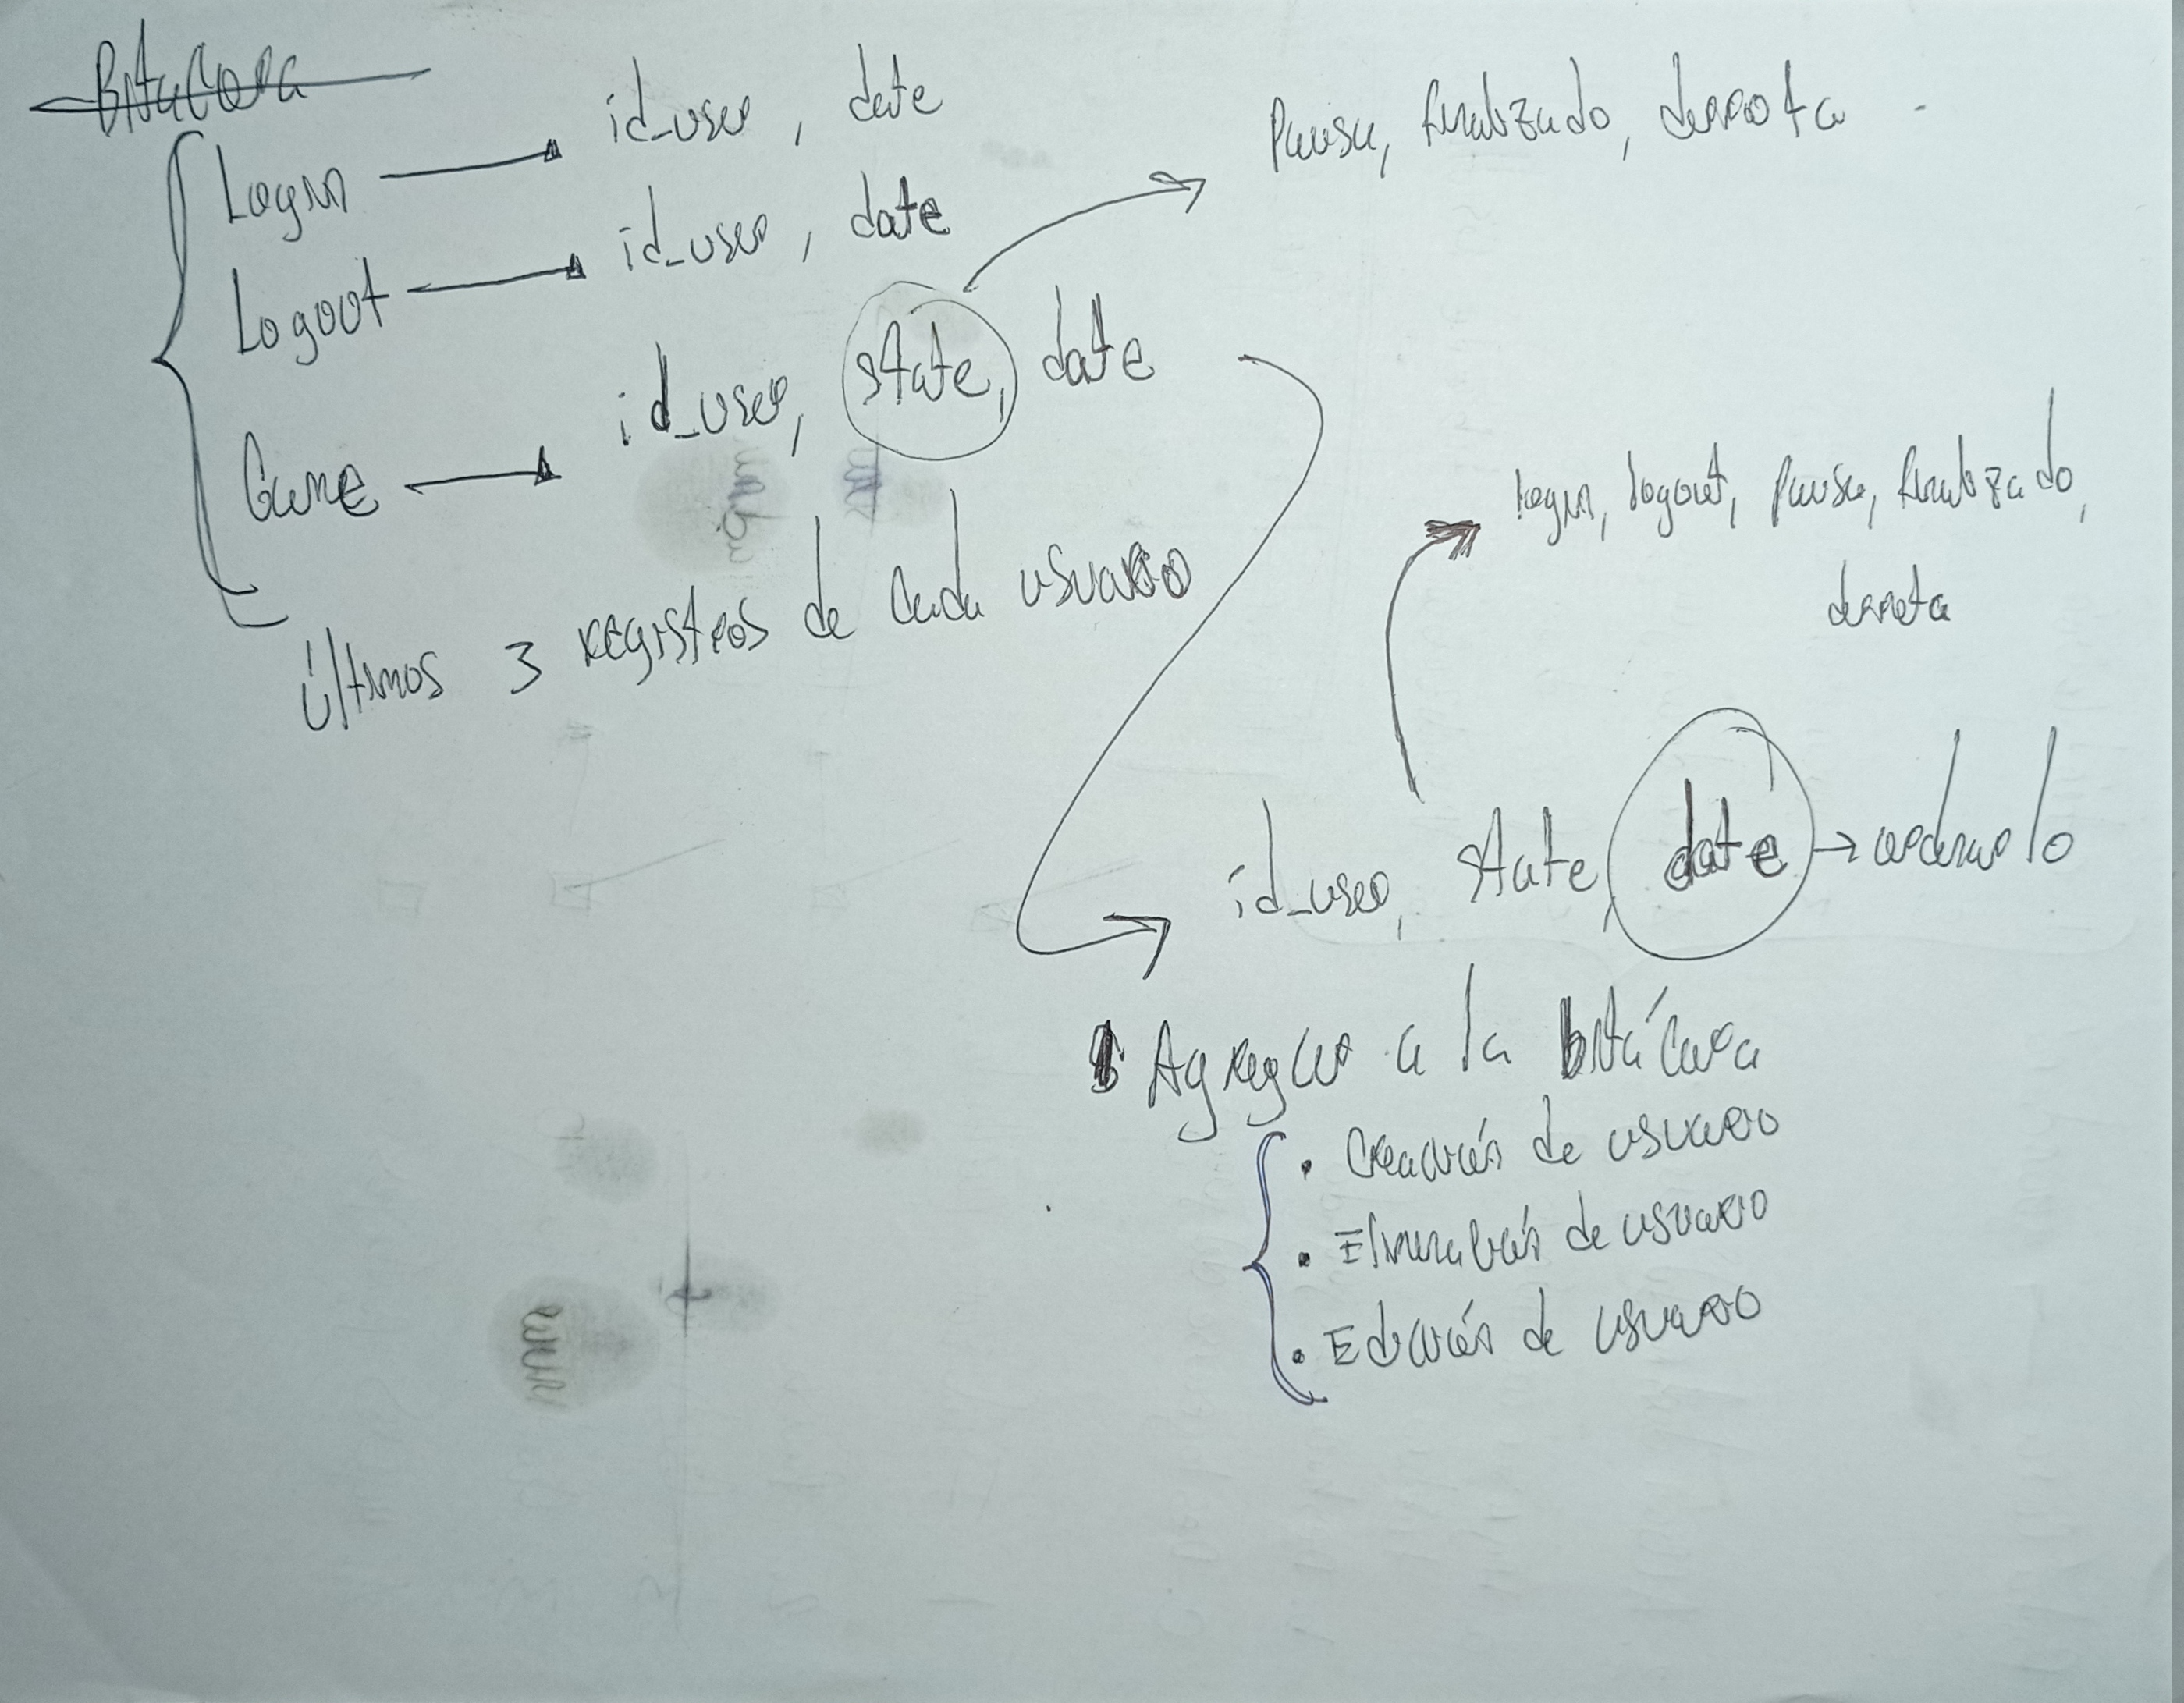 Bitacora
Login → id_user, date
Logout → id_user, date
Game → id_user, state, date
Pausa, finalizado, derrota
Últimos 3 registros de cada usuario
login, logout, pausa, finalizado,
derrota
id_user, state, date → ordenarlo
Agregar a la bitácora
• Creación de usuario
• Eliminación de usuario
• Edición de usuario